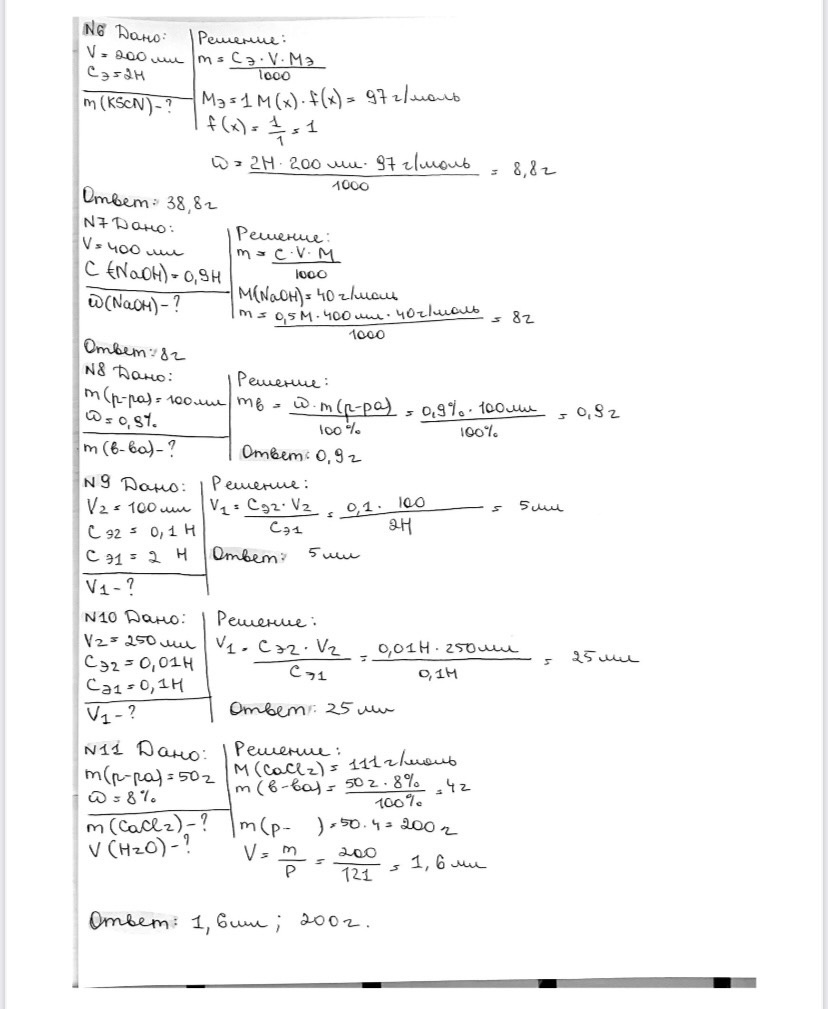 N6 Дано:
V = 200 мл
Cэ = 2Н
m(KScN) - ?
Решение:
m = Cэ · V · Mэ
1000
Mэ = 1 M(x) · f(x) = 97 г/моль
f(x) = 1/1 = 1
ω = 2Н · 200 мл · 97 г/моль = 8,8г
1000
Ответ: 38,8г
N7 Дано:
V = 400 мл
C (NaOH) = 0,9Н
ω(NaOH) - ?
Решение:
m = C · V · M
1000
M(NaOH) = 40 г/моль
m = 0,5M · 400 мл · 40 г/моль = 8г
1000
Ответ: 8г
N8 Дано:
m(р-ра) = 100 мл
ω = 0,9%
m(в-ва) - ?
Решение:
mв = ω · m(р-ра) = 0,9% · 100 мл = 0,9г
100% 100%
Ответ: 0,9г
N9 Дано:
V2 = 100 мл
Cэ2 = 0,1 Н
Cэ1 = 2 Н
V1 - ?
Решение:
V1 = Cэ2 · V2 = 0,1 · 100 = 5 мл
Cэ1 2Н
Ответ: 5 мл
N10 Дано:
V2 = 250 мл
Cэ2 = 0,01Н
Cэ1 = 0,1Н
V1 - ?
Решение:
V1 = Cэ2 · V2 = 0,01Н · 250 мл = 25 мл
Cэ1 0,1Н
Ответ: 25 мл
N11 Дано:
m(р-ра) = 50г
ω = 8%
m(CaCl2) - ?
V(H2O) - ?
Решение:
M(CaCl2) = 111 г/моль
m(в-ва) = 50г · 8% = 4г
100%
m(р- ) = 50 · 4 = 200г
V = m = 200 = 1,6 мл
P 121
Ответ: 1,6 мл; 200г.